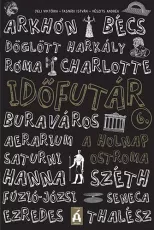 DELI VIKTÓRIA • TASNÁDI ISTVÁN • VÉSZITS ANDREA
ARKHÓN BÉCS
DÖGLÖTT HARKÁLY
RÓMA CHARLOTTE
IDŐFUTÁR
BURAVÁROS 6.
AERARIUM A HOLNAP
SATURNI OSTROMA
HANNA SZÉTH
FÚZIÓ-JÓZSI SENECA
EZREDES THALÉSZ